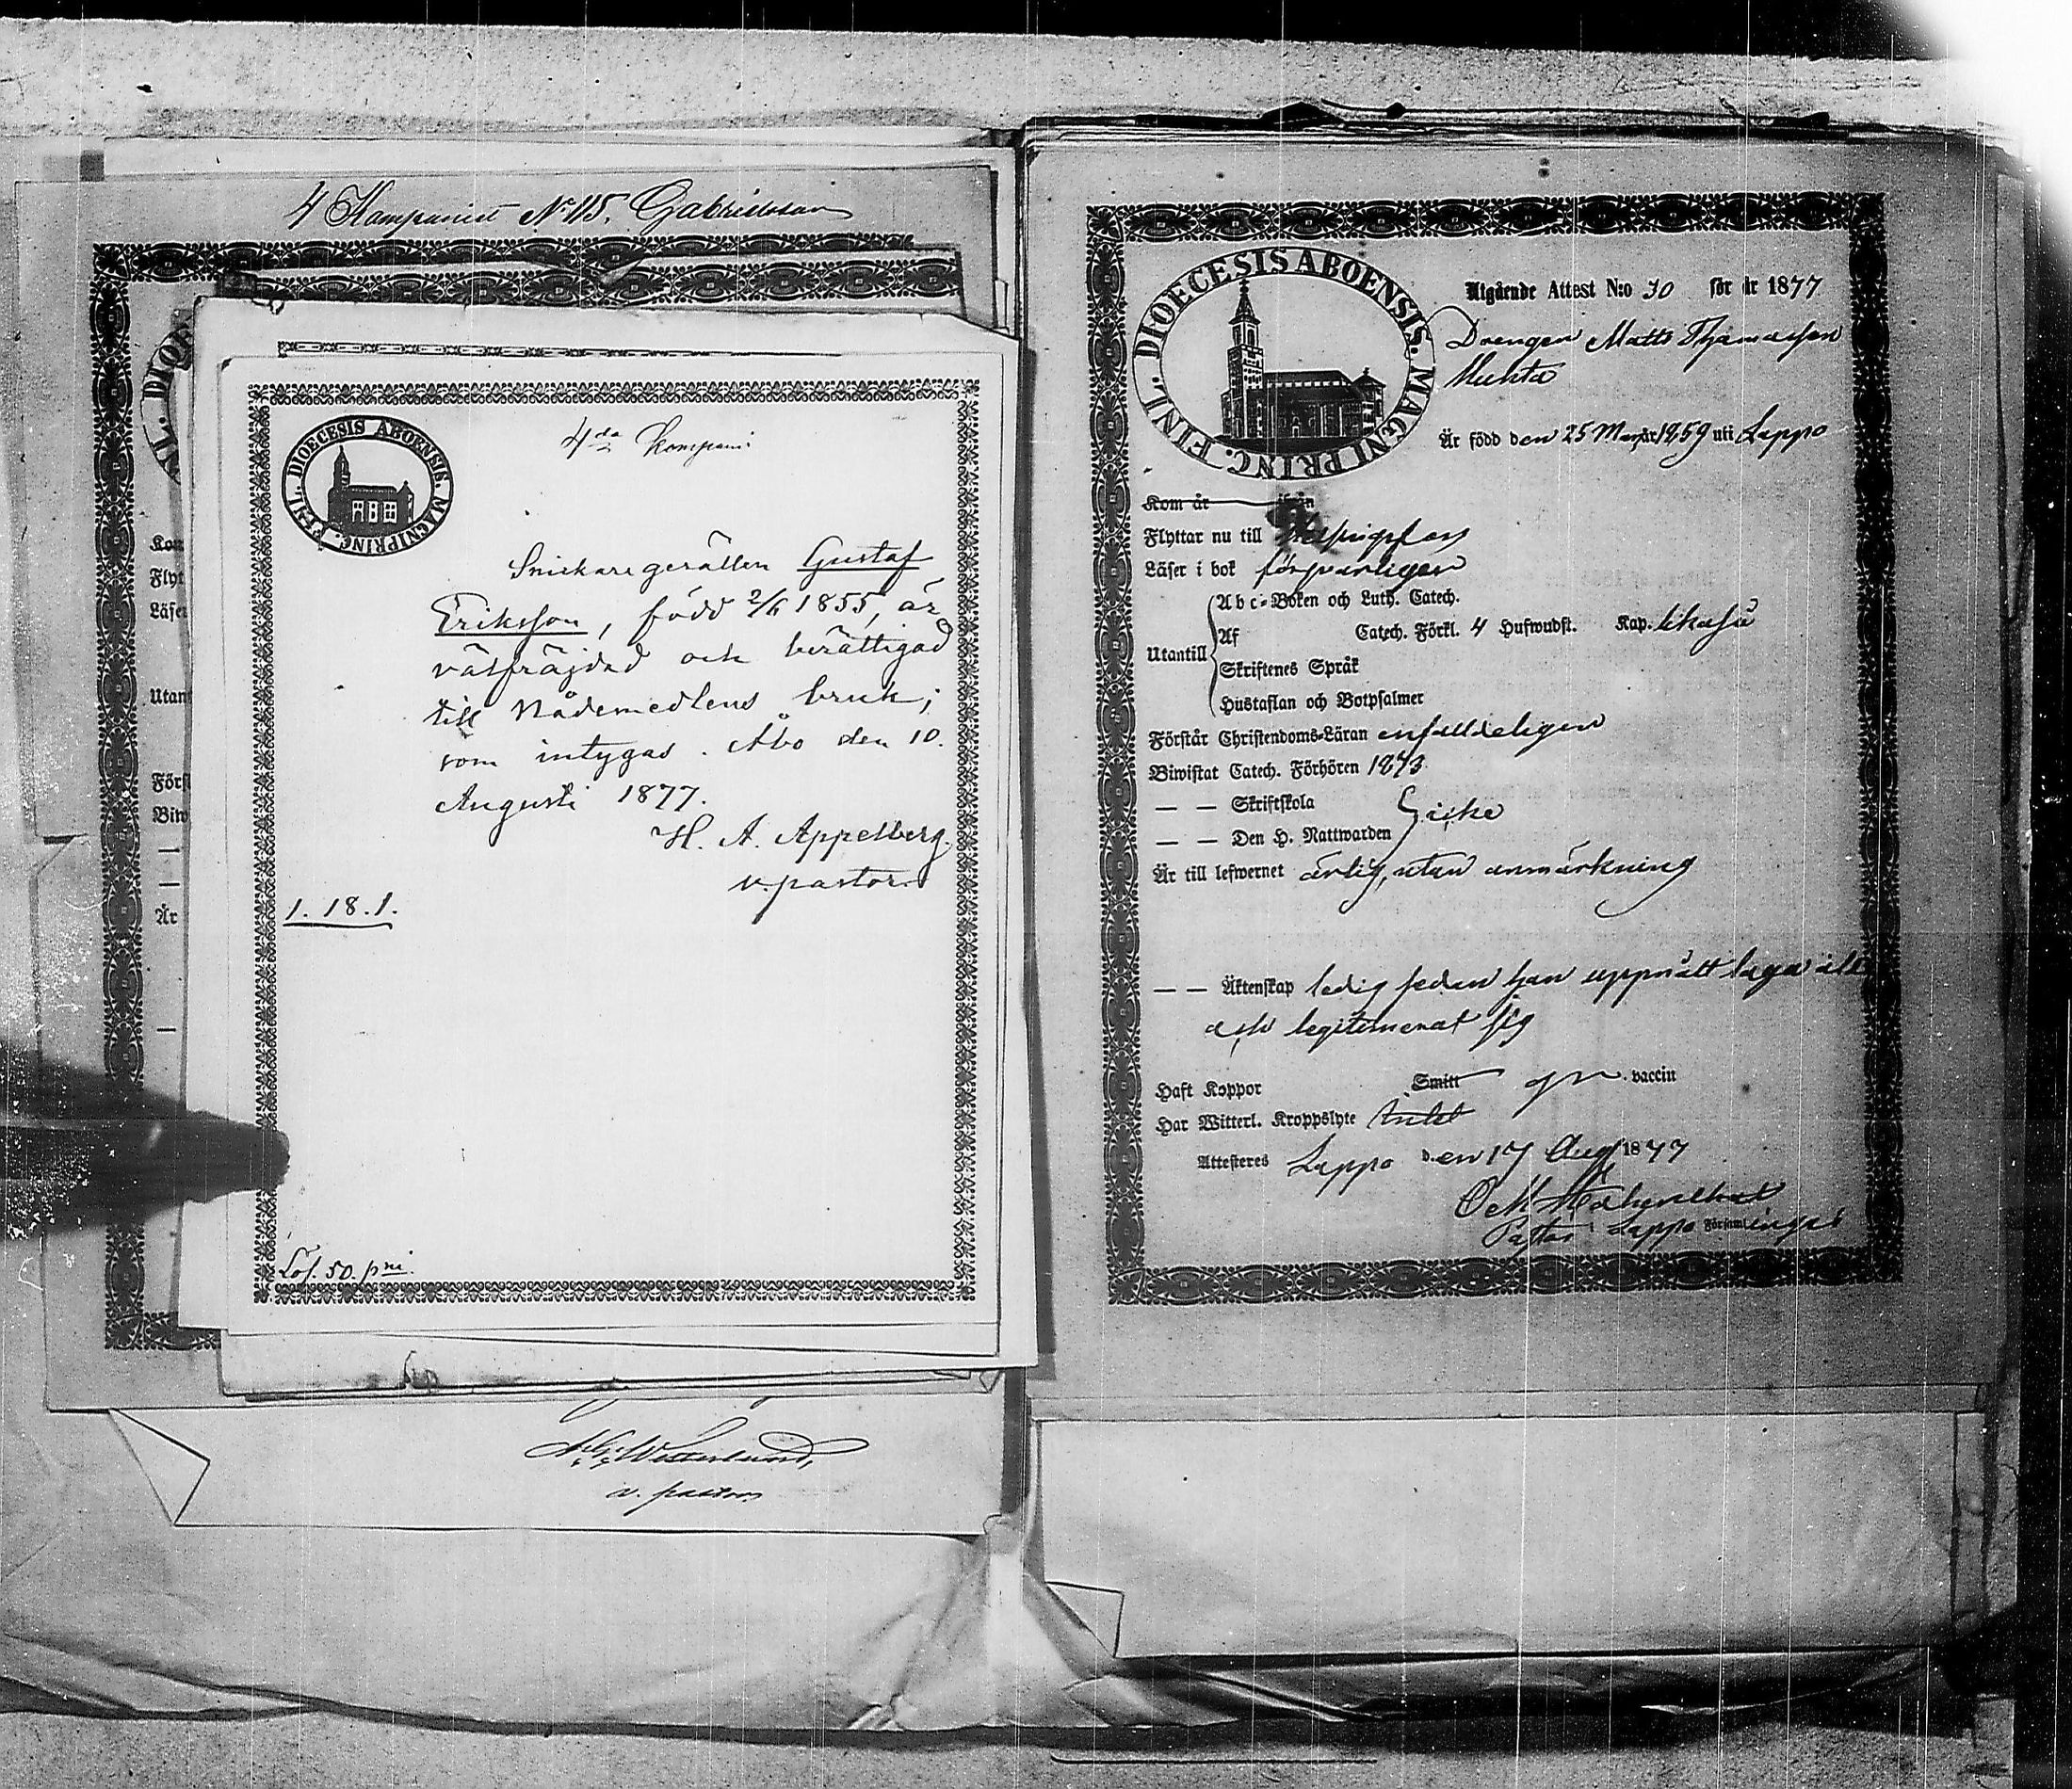 4 Kompaniet No 115. Gabrielsson
DIOECESIS ABOENSIS. MAGNI PRINC. FINL.
4da Kompani
Snickaregesällen Gustaf
Eriksson, född 2/6 1855, är
välfräjdad och berättigad
till Nådemedlens bruk;
som intygas. Åbo den 10.
Augusti 1877.
H. A. Appelberg.
v. pastor.
1. 18. 1.
Lös. 50. pni.
v. pastor
Kom
Flyt
Läser
Utant
Först
Biw
Är
DIOECESIS ABOENSIS. MAGNI PRINC. FINL.
Utgående Attest N:o 30 för år 1877
Drengen Matts Thomasson
Är född den 25 Mars år 1859 uti Lappo
Kom år ifrån
Flyttar nu till Helsingfors
Läser i bok försvarligen
Utantill
Abc-Boken och Luth. Catech.
Af Catech. Förkl. 4 Hufwudst. Kap. likaså
Skriftenes Språk
Hustaflan och Botpsalmer
Förstår Christendoms-Läran enfaldeligen
Biwistat Catech. Förhören 1873
— — Skriftskola
— — Den H. Nattwarden Icke
Är till lefwernet ärlig, utan anmärkning
— — Äktenskap ledig sedan han uppnått laga åld
och legitimerat sig
Haft Koppor Smitt gm vaccin
Har Witterl. Kroppslyte intet
Attesteres Lappo den 17 Aug 1877
Pastor i Lappo Församlingar